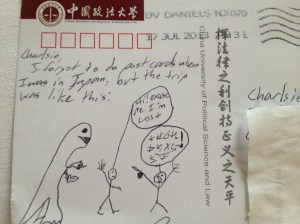 中国政法大学
DV DANIELS NJ 070
17 JUL 2013
Charlsie,
I forgot to do postcards when
I was in Japan, but the trip
was like this:
Hi! excuse
me. I'm
lost
China University of Political Science and Law
挥法律之利剑 持正义之天平
Charlsie